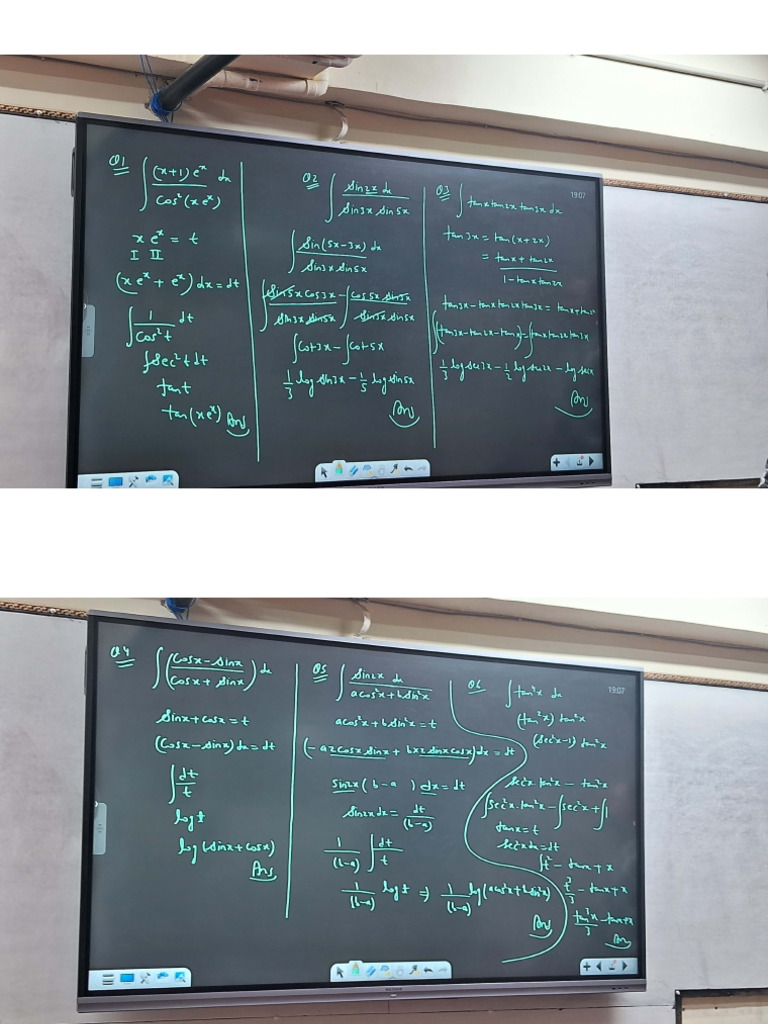 Q1
∫ (x+1) e^x dx / cos²(x e^x)
x e^x = t
I II
(x e^x + e^x) dx = dt
∫ 1/cos²t dt
∫ sec²t dt
tan t
tan(x e^x) Ans
Q2
∫ sin2x dx / sin3x sin5x
∫ sin(5x-3x) dx / sin3x sin5x
∫ sin5x cos3x / sin3x sin5x - ∫ cos5x sin3x / sin3x sin5x
∫cot3x - ∫cot5x
1/3 log sin3x - 1/5 log sin5x
Ans
Q3
19:07
∫ tanx tan2x tan3x dx
tan3x = tan(x+2x)
= tanx + tan2x / 1 - tanx tan2x
tan3x - tanx tan2x tan3x = tanx + tan2x
∫(tan3x - tan2x - tanx) = ∫tanx tan2x tan3x
1/3 log sec3x - 1/2 log sec2x - log secx
Ans
Q4
∫ (cosx - sinx / cosx + sinx) dx
sinx + cosx = t
(cosx - sinx) dx = dt
∫ dt/t
log t
log (sinx + cosx)
Ans
Q5
∫ sin2x dx / a cos²x + b sin²x
a cos²x + b sin²x = t
(- a2 cosx sinx + b x 2 sinx cosx) dx = dt
sin2x (b - a) dx = dt
sin2x dx = dt/(b-a)
1/(b-a) ∫ dt/t
1/(b-a) log t ⇒ 1/(b-a) log(a cos²x + b sin²x)
Ans
Q6
19:07
∫ tan⁴x dx
(tan²x) tan²x
(sec²x - 1) tan²x
sec²x tan²x - tan²x
∫sec²x tan²x - ∫sec²x + ∫1
tanx = t
sec²x dx = dt
∫t² - tanx + x
t³/3 - tanx + x
tan³x/3 - tanx + x
Ans